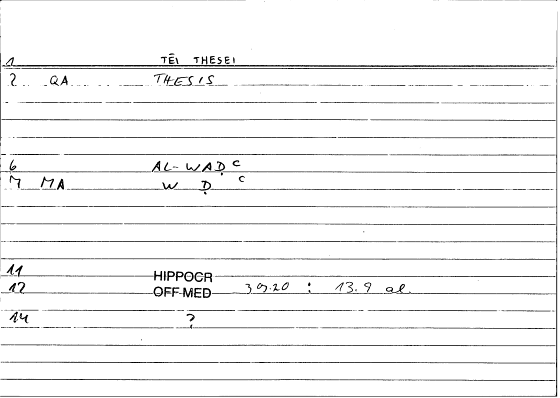 1 TĒI THESEI
2 QA THESIS
6 AL-WAḌ ᶜ
M MA W Ḍ ᶜ
11 HIPPOCR
12 OFF-MED 309.20 : 13.9 al.
14 ?